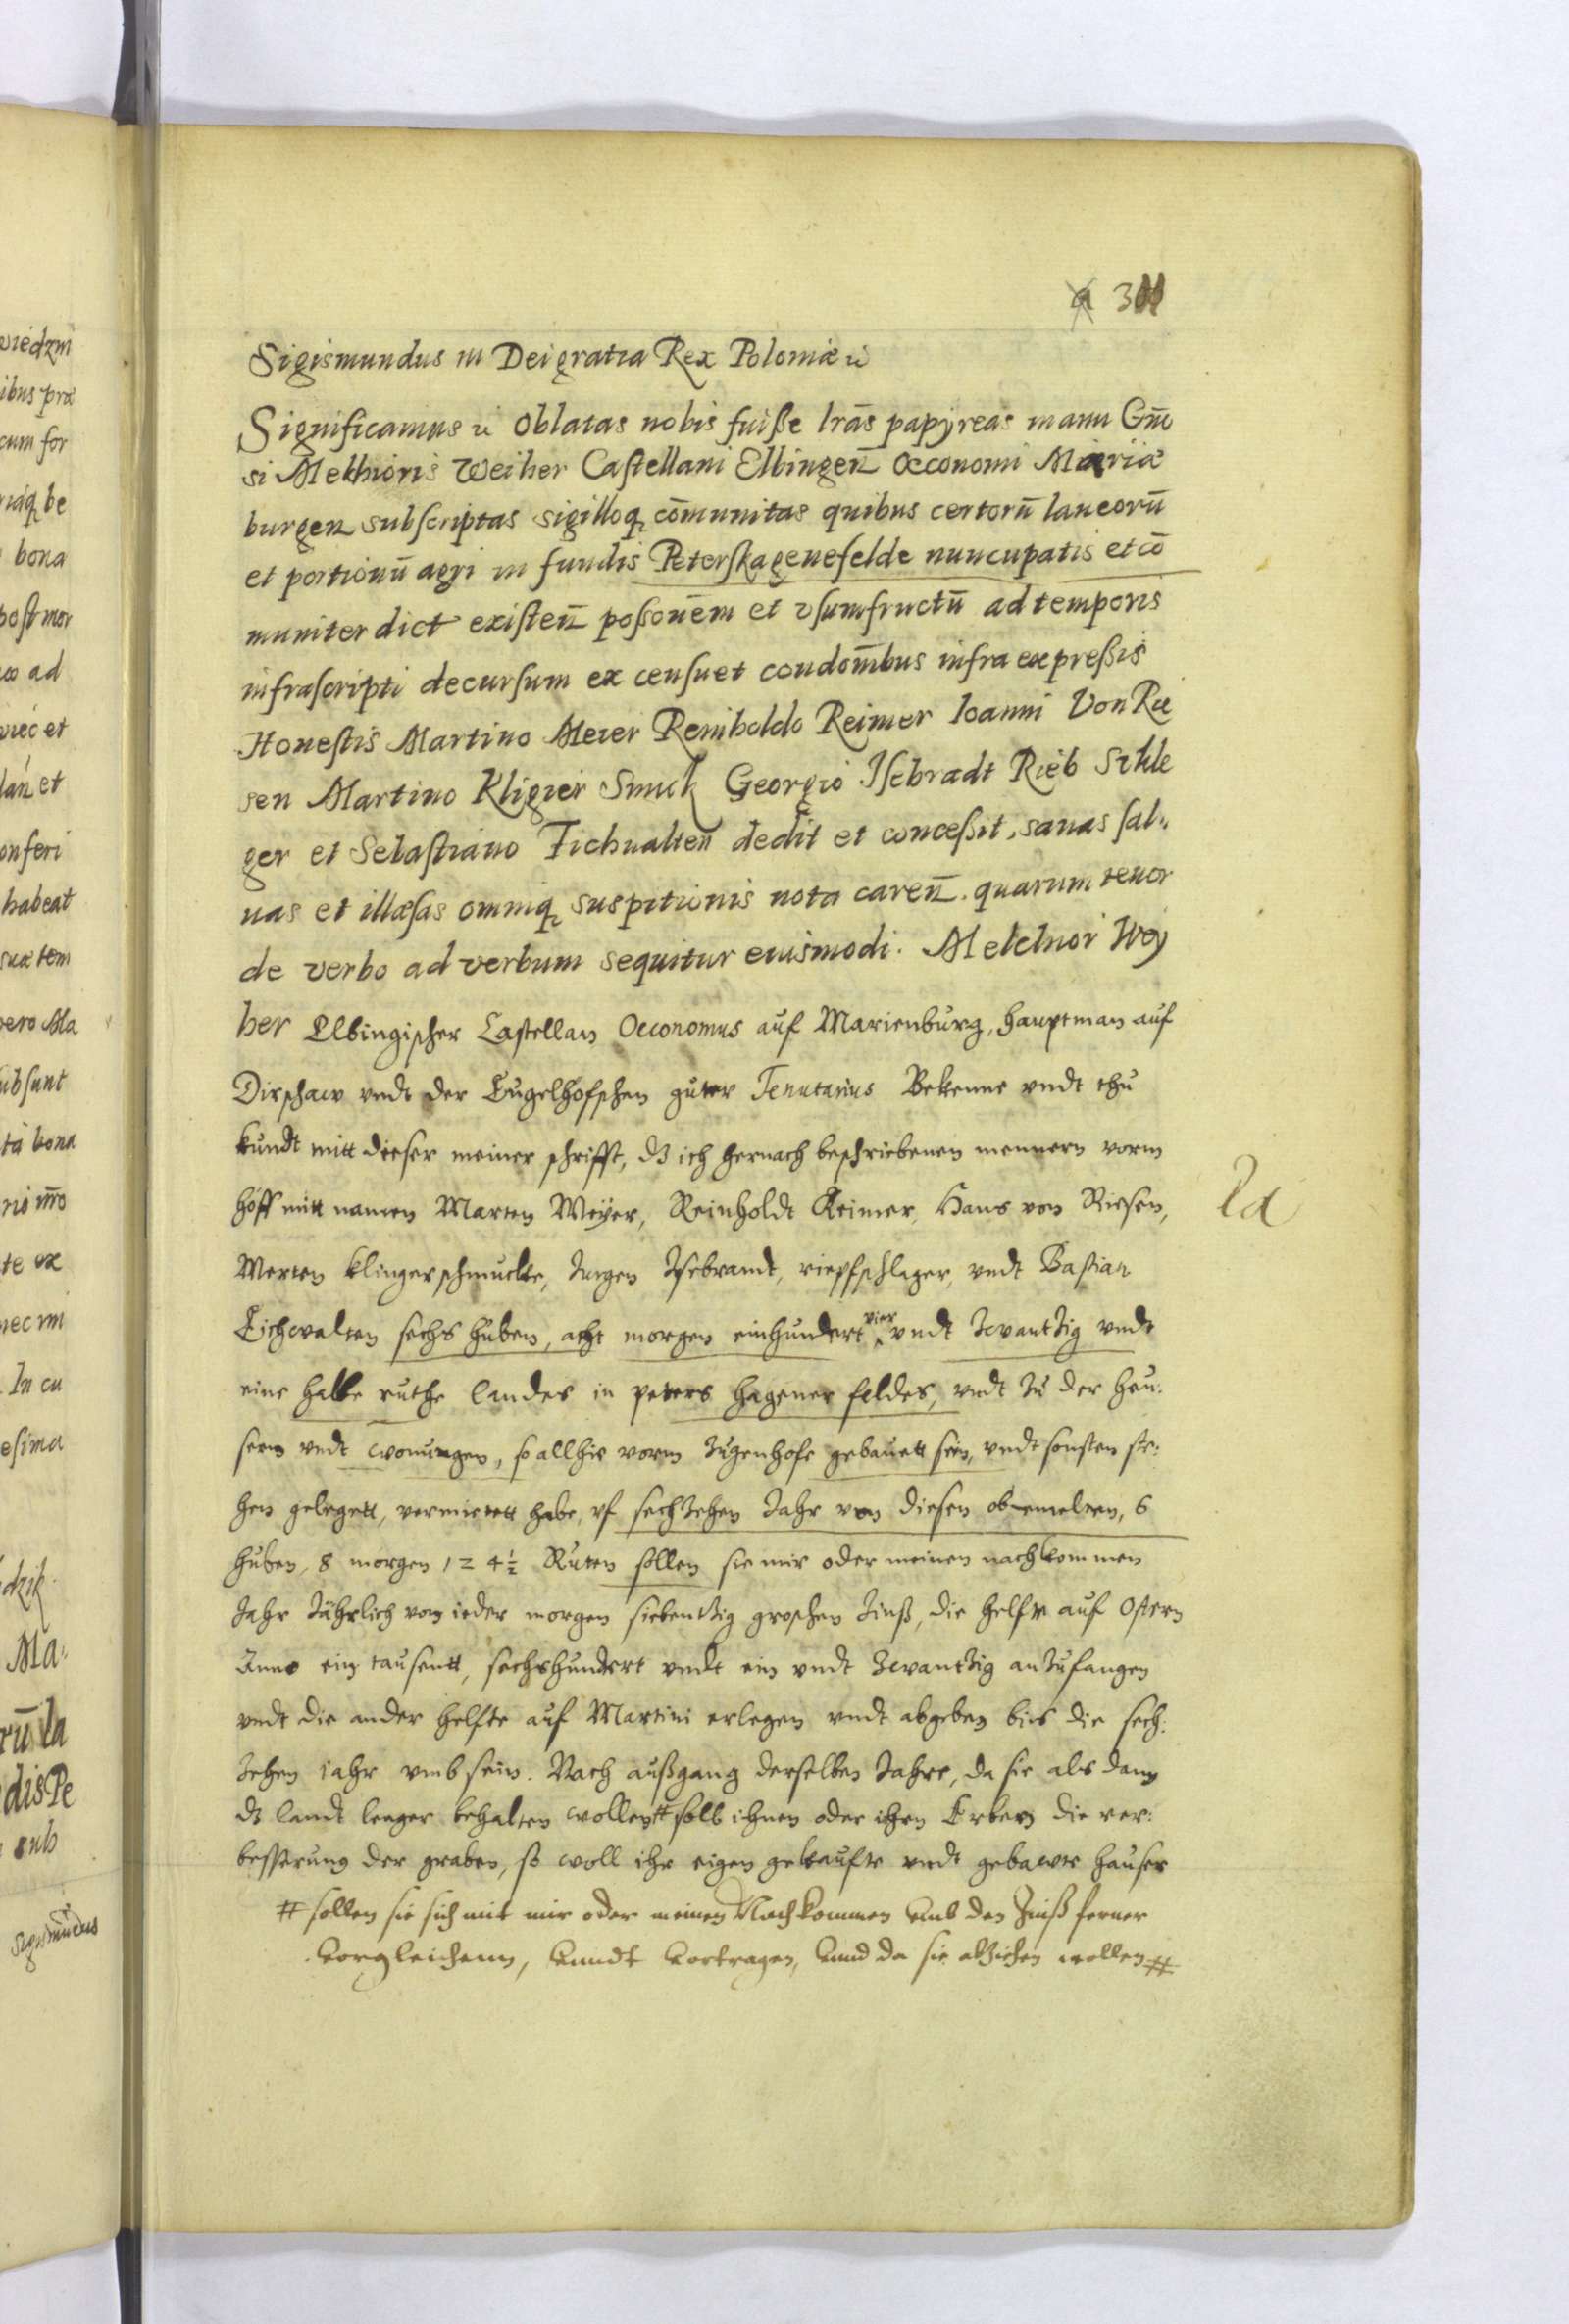 a 311
Sigismundus III Dei gratia Rex Poloniæ
Significamus Oblatas nobis fuiße lrās papyreas manu Gn̄o
si Melchioris Weiher Castellani Elbingen̄ Oeconomi Mariæ
burgen̄ subscriptas sigilloq₃ cōmunitas quibus certorū laneorū
et portionū agri in fundis Peterskagenefelde nuncupatis et cō
muniter dict existen̄ poßoneṁ et vsumfructū ad temporis
infrascripti decursum ex censu et condom̄bus infra expreßis
Honestis Martino Meier Reinholdo Reimer Ioanni Von Rie
sen Martino Kligier Smuck Georgio Isebradt Rieb Schle
ger et Sebastiano Fichualten̄ dedit et conceßit, sanas sal„
uas et illæsas omniq₃ suspitionis nota caren̄. quarum tenor
de verbo ad verbum sequitur eiusmodi. Melchior Wey
her Elbingischer Castellan Oeconomus auf Marienburg, hauptman auf
Dirschaw vndt der Eugelhofschen guter Tenutarius Bekenne vndt thu
kundt mitt dieser meiner schrifft, dz ich hernach beschriebenen mennern vorm
hoff mitt namen Marten Meyer, Reinholdt Reimer, Hans von Riesen,
Merten klingerschmucke, Jurgen Isebrandt, riepschlager, vndt Bastian
Eichwalten sechs huben, acht morgen einhundert vier vndt zwantzig vndt
eine halbe ruthe landes in peters hagener feldes, vndt zu der heu:
sern vndt wonungen, so allhie vorm Tugenhofe gebauett sein, vndt sonsten ste:
hen gelegett, vermietett habe, vf sechzehen Jahr von diesen obemelten, 6
huben, 8 morgen 124½ Ruten sollen sie mir oder meinen nachkommen
Jahr Jährlich von ieder morgen siebentzig groschen Zinß, die helfte auf Ostern
Anno ein tausentt, sechshundert vndt ein vndt zwantzig anzufangen
vndt die ander helfte auf Martini erlegen vndt abgeben bies die sech:
zehen iahr vmb sein. Nach außgang derselben Jahre, da sie als dann
dz landt lenger behalten wollen # soll ihnen oder ihren Erben die ver:
besserung der graben, so woll ihr eigen gekaufte vndt gebawte hauser
# sollen sie sich mit mir oder meinen Nachkommen vmb den Zinß ferner
vorgleichenn, vnndt vortragen, vnnd da sie abziehen wollen #